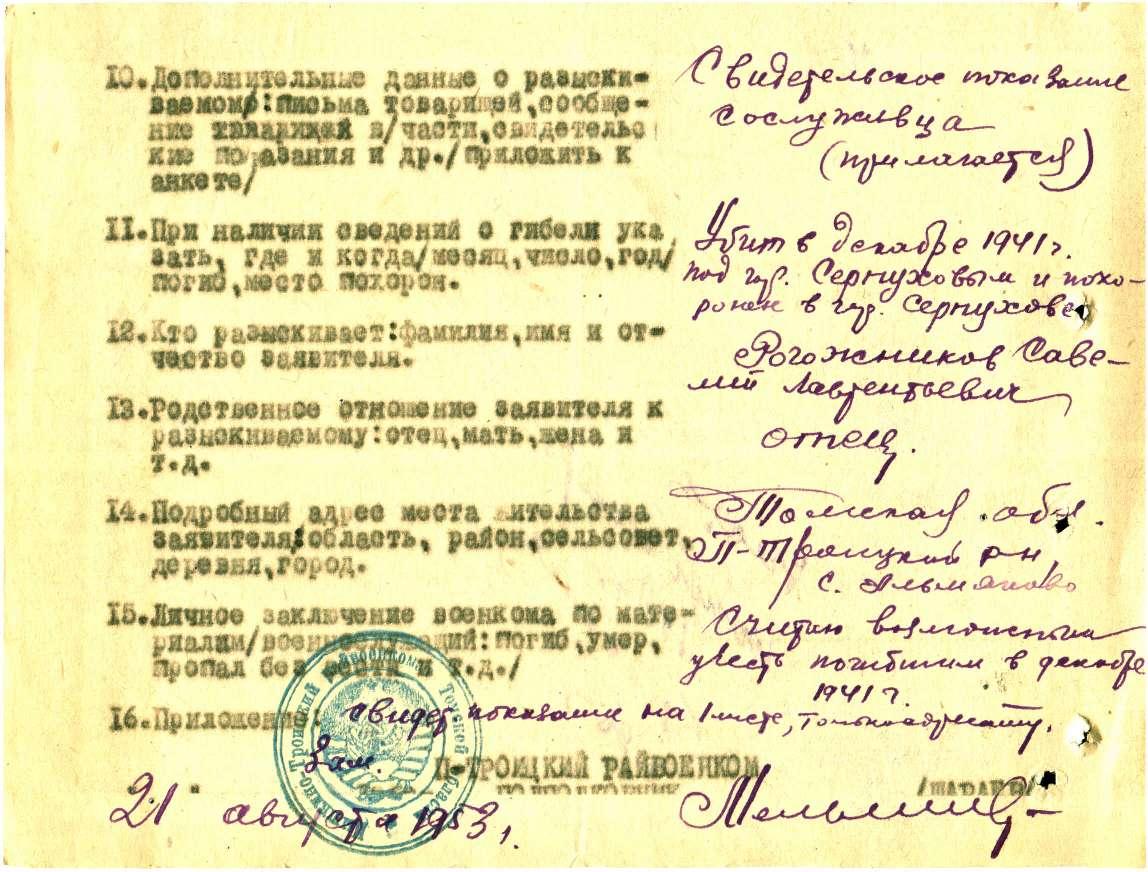 10.Дополнительные данные о разыски-
ваемом/:письма товарищей,сообще-
ние в/части,свидетельс
кие показания и др./приложить к
анкете/
Свидетельское показание
сослуживца
(прилагается)
11.При наличии сведений о гибели ука
зать, где и когда/месяц,число,год/
погиб,место похорон.
Убит в декабре 1941 г.
под гор. Серпуховым и похо-
ронен в гор. Серпухове
12.Кто разыскивает:фамилия,имя и от-
чество заявителя.
Рогожников Саве-
лий Лаврентьевич
13.Родственное отношение заявителя к
разыскиваемому:отец,мать,жена и
т.д.
отец.
14.Подробный адрес места жительства
заявителя:область, район,сельсовет,
деревня,город.
Томская обл.
П-Троицкий р-н,
с.
15.Личное заключение военкома по мате-
риалам/военнослужащий:погиб,умер,
пропал без вести и т.д./
Считаю возможным
учесть погибшим в декабре
1941 г.
16.Приложение: свидет. показание на 1 листе,
Зам. П-ТРОИЦКИЙ РАЙВОЕНКОМ
ПОДПОЛКОВНИК /ШАРАЕВ/
21 августа 1953 г.
Пышкино-Троицкий райвоенкомат Томской области